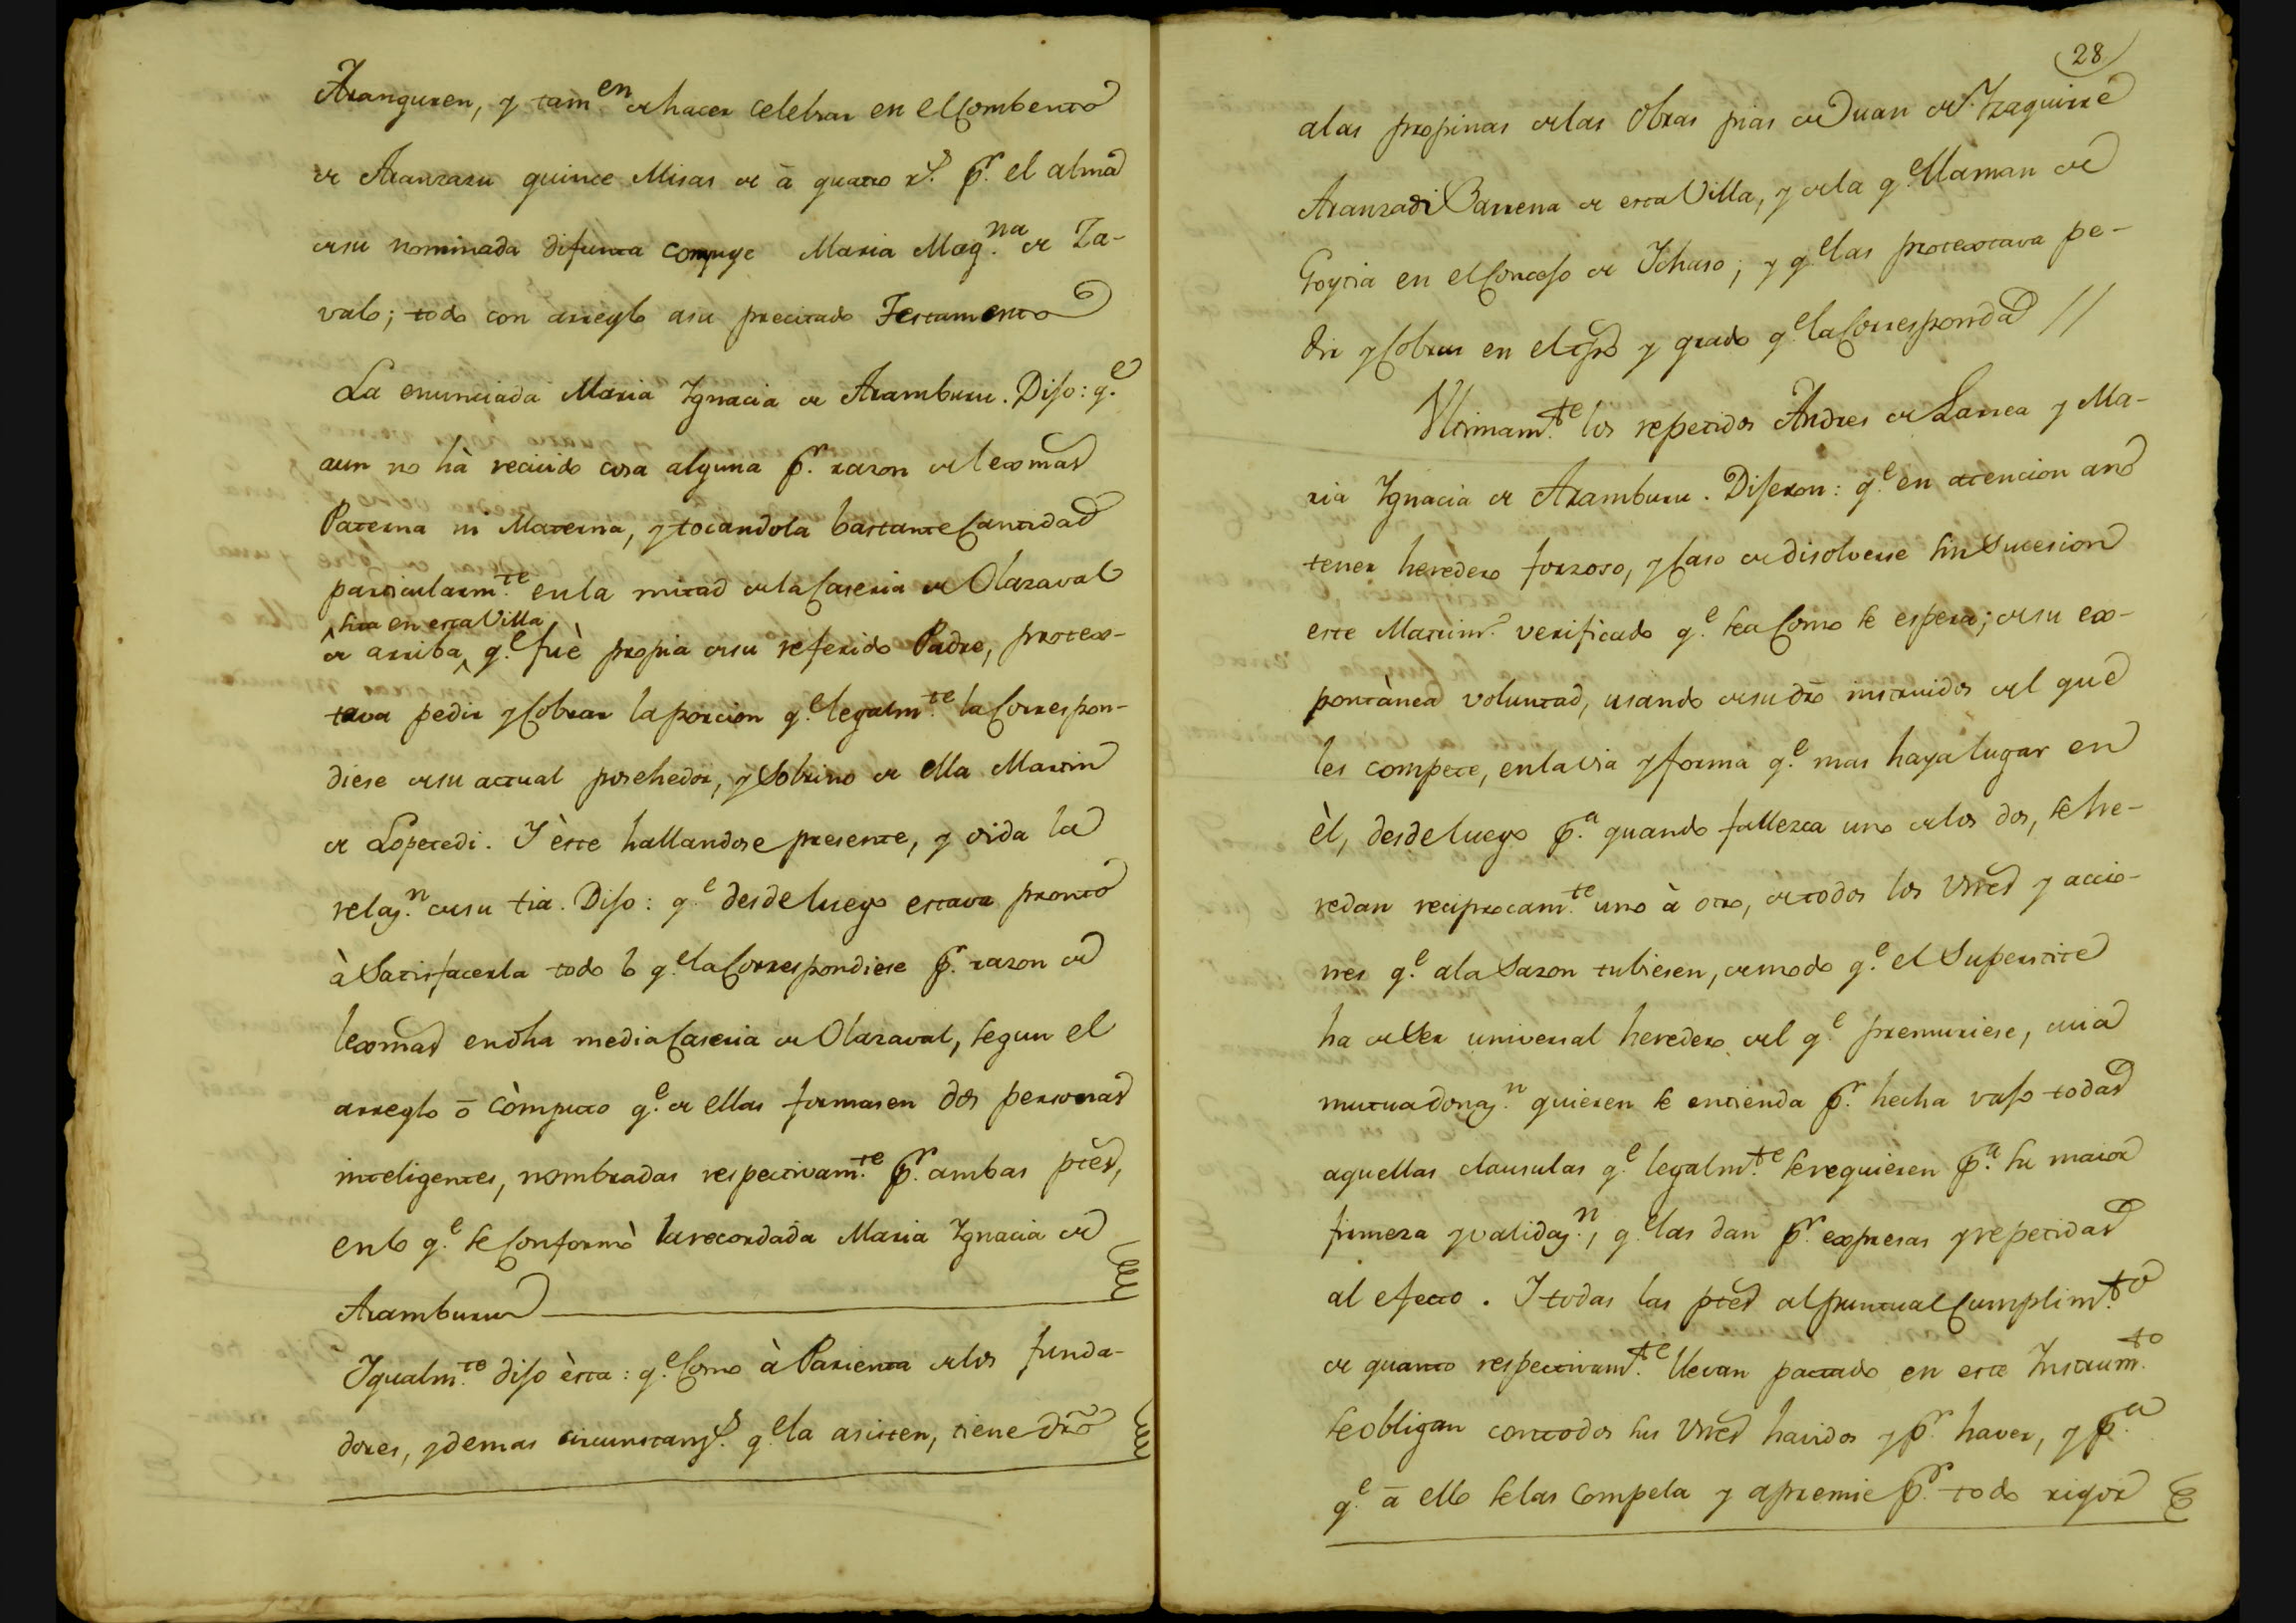 Aranguren, y tam.en de hacer celebrar en el Combento
de Aranzazu quince Misas de à quatro r.s p.r el alma
de su nominada difunta conjuge Maria Mag.na de Za-
valo; todo con arreglo a su precitado Testamento
La enunciada Maria Ygnacia de Aramburu. Dijo: q.e
aun no hà recivido cosa alguna p.r razon de lexmas
Paterna ni Materna, y tocandola bastante Cantidad
particularm.te en la mitad de la Caseria de Olazaval
sita en esta Villa
de arriba q.e fuè propia de su referido Padre, protex-
tava pedir y Cobrar la porcion q.e legalm.te la Correspon-
diese de su actual posehedor, y Sobrino de ella Martin
de Lopetedi. Y èste hallandose presente, y oida la
relaz.n de su tia. Dijo: q.e desde luego estava pronto
à Satisfacerla todo lo q.e la Correspondiese p.r razon de
lexmas en dha media Caseria de Olazaval, segun el
arreglo ò còmputo q.e de ellas formasen dos personas
inteligentes, nombradas respectivam.te p.r ambas ptes,
en lo q.e se Conformò la recordada Maria Ygnacia de
Aramburu
Ygualm.te dijo èsta: q.e Como à Parienta de los funda-
dores, y demas circunstanz.s q.e la asisten, tiene dro
28
a las propinas de las Obras pias de Juan de Yzaguirre
Aranzadi Barrena de esta Villa, y de la q.e llaman de
Goytia en el Concejo de Ychaso; y q.e las protextava pe-
dir y Cobrar en el tpo y grado q.e la Corresponda //
Ultimam.te los repetidos Andres de Larrea y Ma-
ria Ygnacia de Aramburu. Dijeron: q.e en atencion a no
tener heredero forzoso, y Caso de disolverse sin Sucesion
este Matrim.o verificado q.e sea Como se espera; de su ex-
pontànea voluntad, usando de su dro instruidos del que
les compete, en la via y forma q.e mas haya lugar en
èl, desde luego p.a quando fallezca uno de los dos, se he-
redan reciprocam.te uno à otro, de todos los vnes y accio-
nes q.e a la Sazon tubiesen, de modo q.e el Superstite
ha de Ser universal heredero del q.e premuriese, cuia
mutua donaz.n quieren se entienda p.r hecha vajo todas
aquellas clausulas q.e legalm.te se requieren p.a su maior
firmeza y validaz.n, q.e las dan p.r expresas y repetidas
al efecto. Y todas las ptes al puntual Cumplim.to
de quanto respectivam.te llevan pactado en este Instrum.to
se obligan con todos sus vnes havidos y p.r haver, y p.a
q.e à ello se las compela y apremie p.r todo rigor